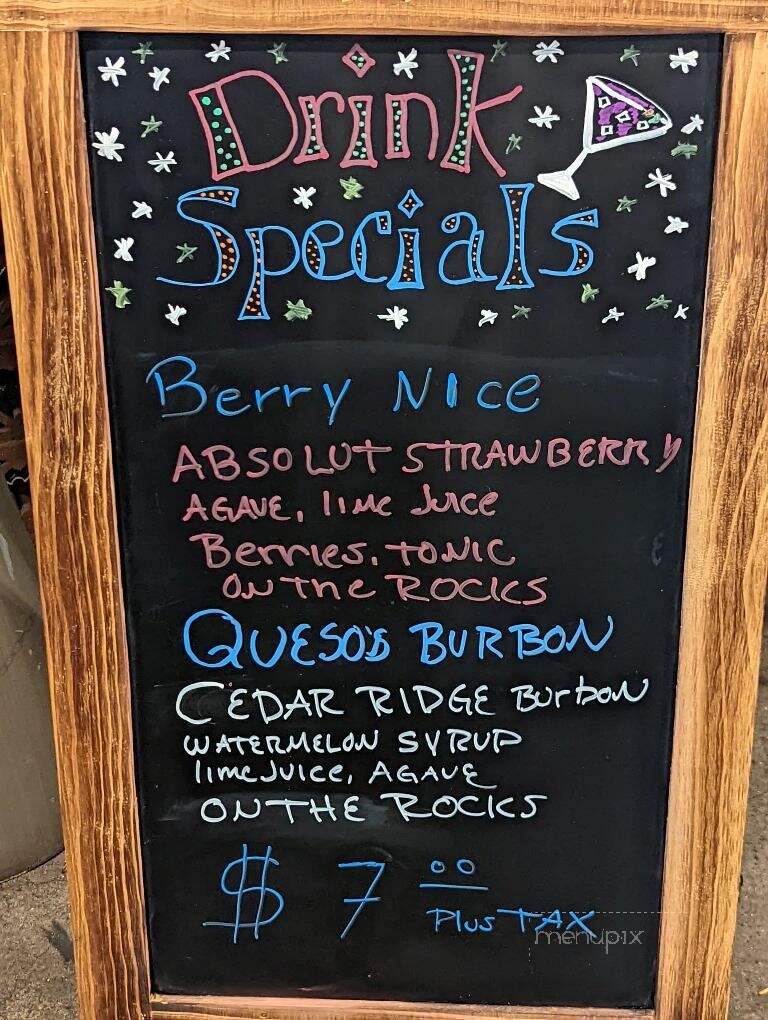 Drink
Specials
Berry Nice
ABSOLUT STRAWBERRY
AGAVE, lime Juice
Berries. TONIC
ON The ROCKS
QUESO'S BURBON
CEDAR RIDGE BurboN
WATERMELON SYRUP
lime JUICE, AGAVE
ON THE ROCKS
$ 7 00
Plus TAX
menupix